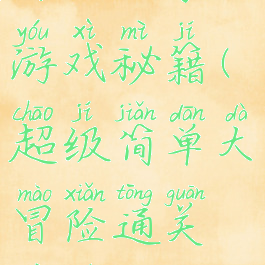 yóu xì mì jí
游戏秘籍(
chāo jí jiǎn dān dà
超级简单大
mào xiǎn tōng guān
冒险通关